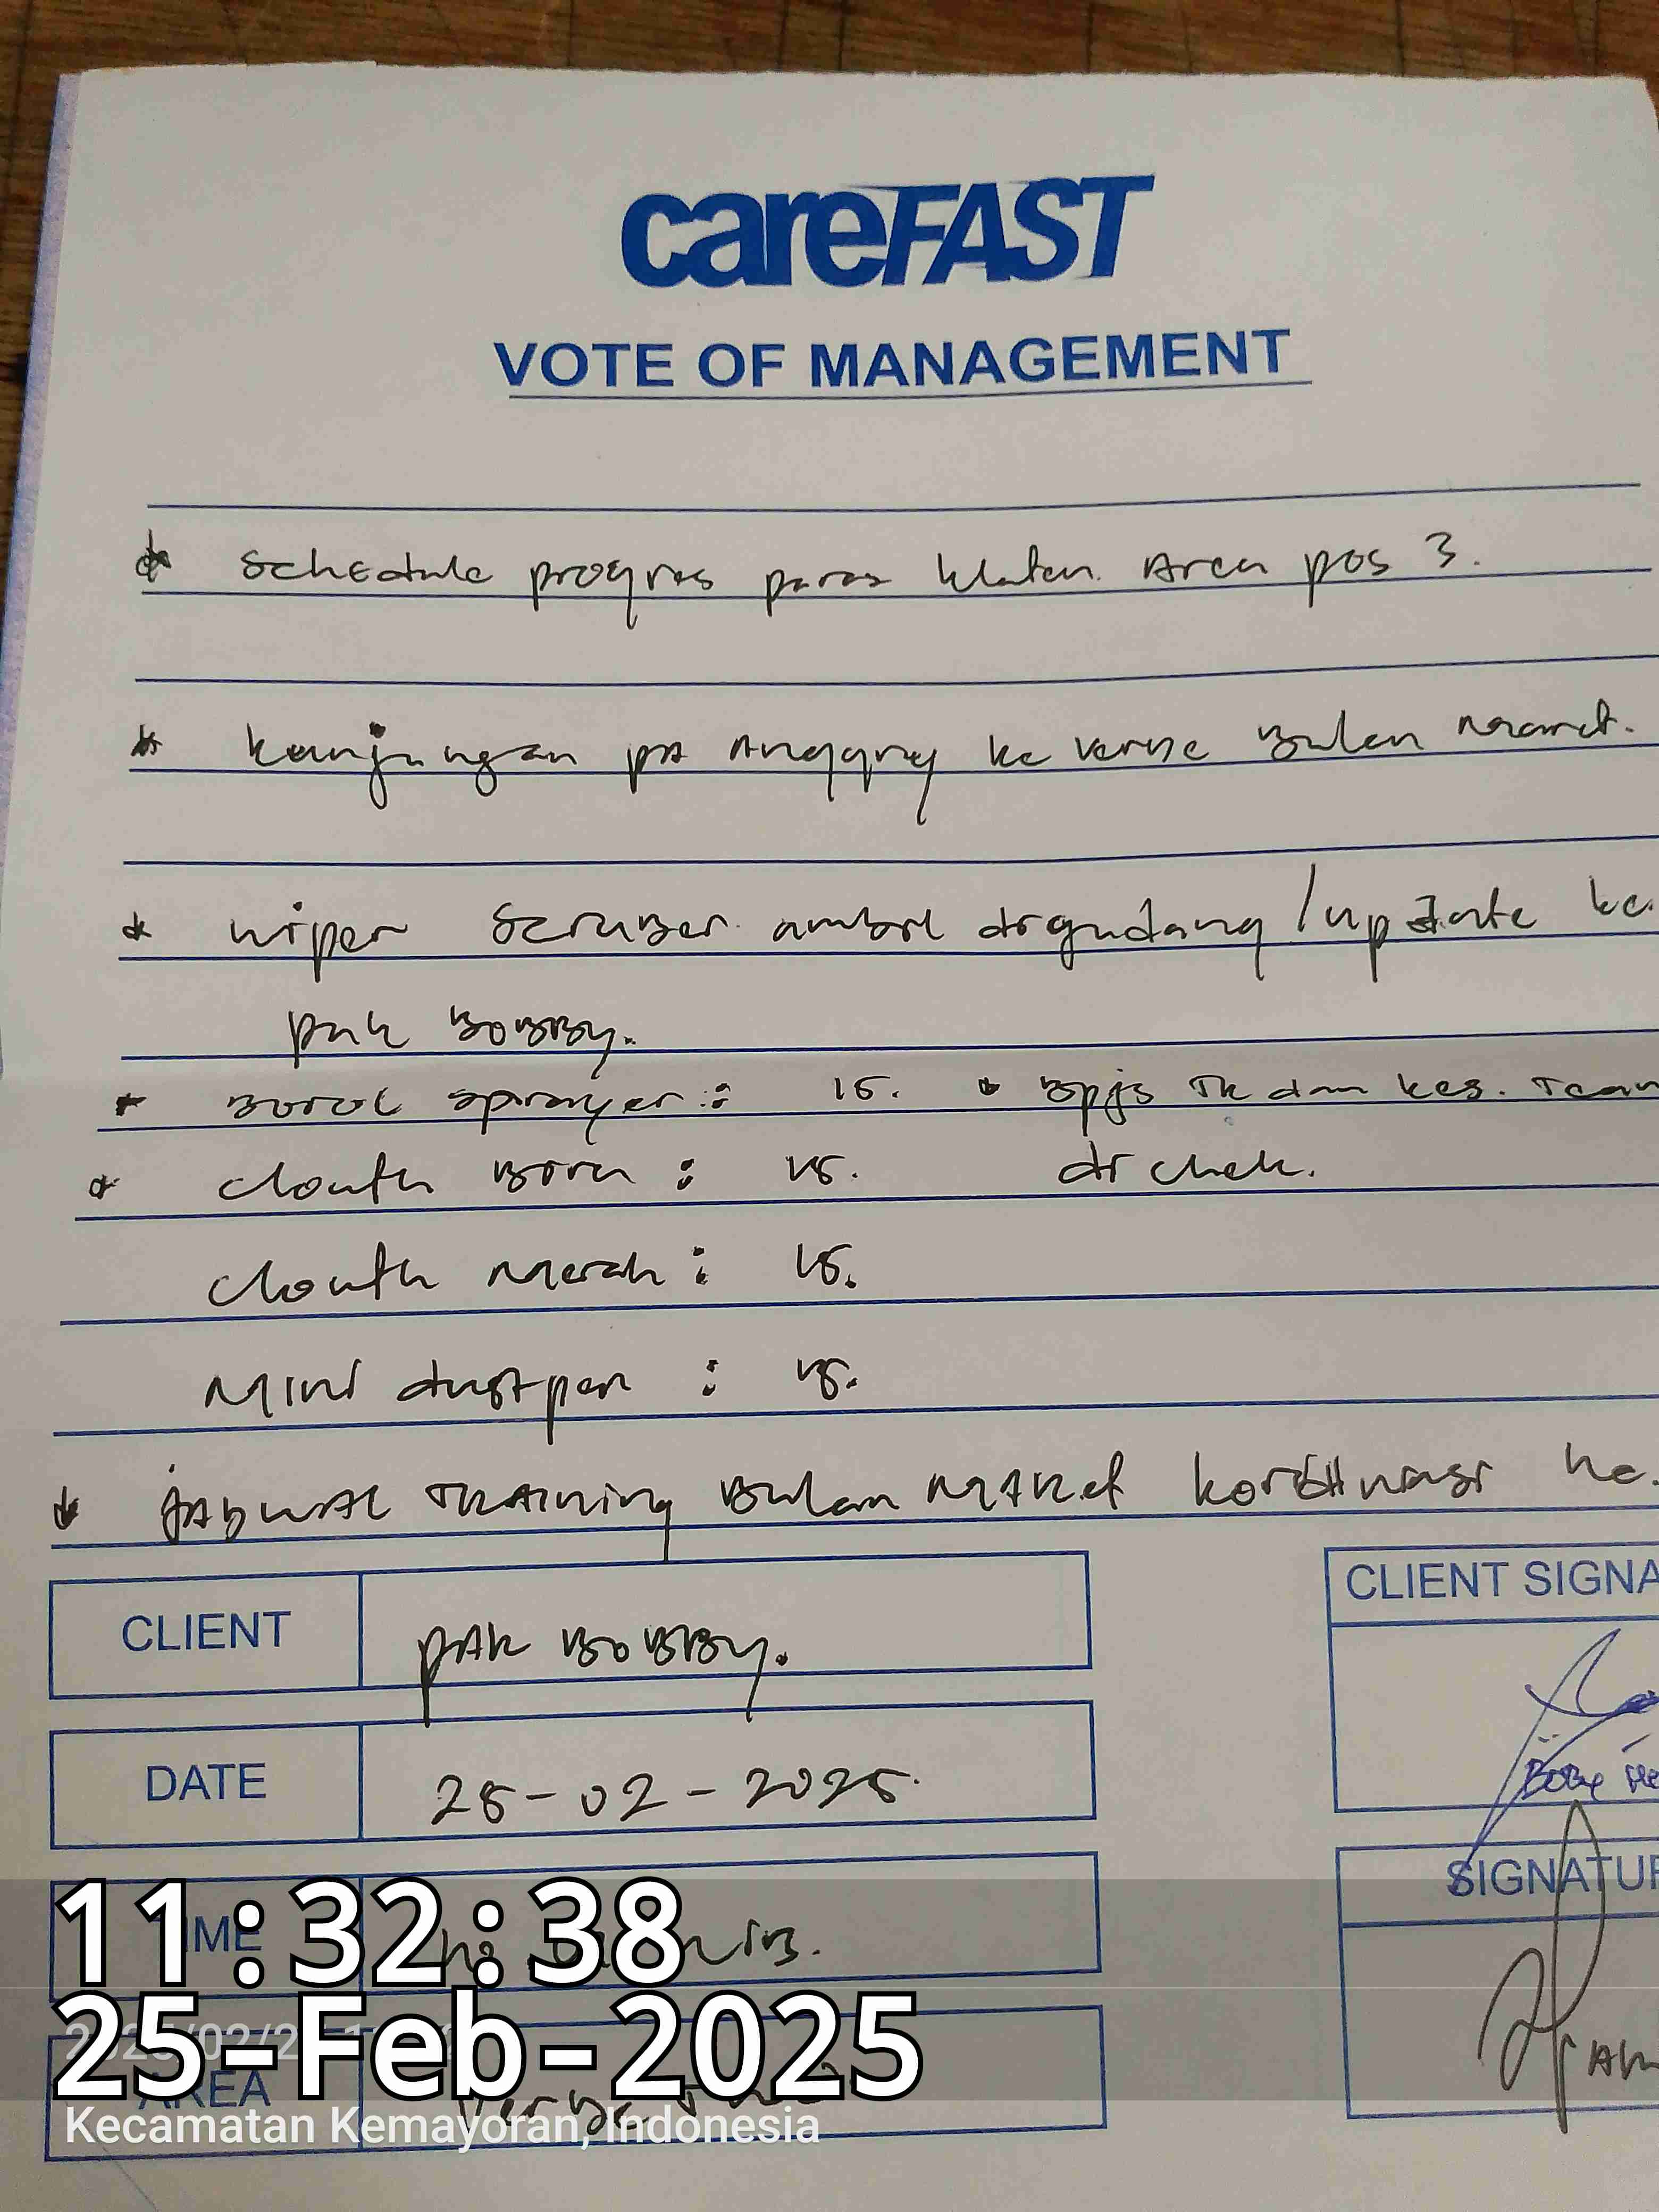 careFAST
VOTE OF MANAGEMENT
* Schedule progres Area pos 3.
* kunjungan pa Anggry ke verse Bulan maret.
* wiper Scruber ambil digudang / update ke.
pak BoBBy.
* Botol sprayer : 15. * Bpjs Tk dan kes. Team
* Clouth Biru : 15. di chek.
Clouth Merah : 15.
Mini dustpan : 15.
* JADWAL TRAINING Bulan MARet kordinasi ke.
CLIENT PAK BOBBY. CLIENT SIGNA
DATE 25-02-2025. SIGNATUR
11:32:38
25-Feb-2025
AREA
Kecamatan Kemayoran, Indonesia